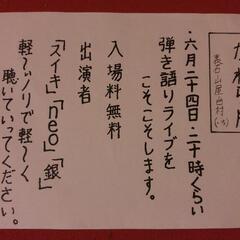 ・六月二十四日・二十時くらい
弾き語りライブを
こそこそします。
入場料無料
出演者
「スイキ」「neo」「銀」
軽～いノリで軽～く
聴いていってください。